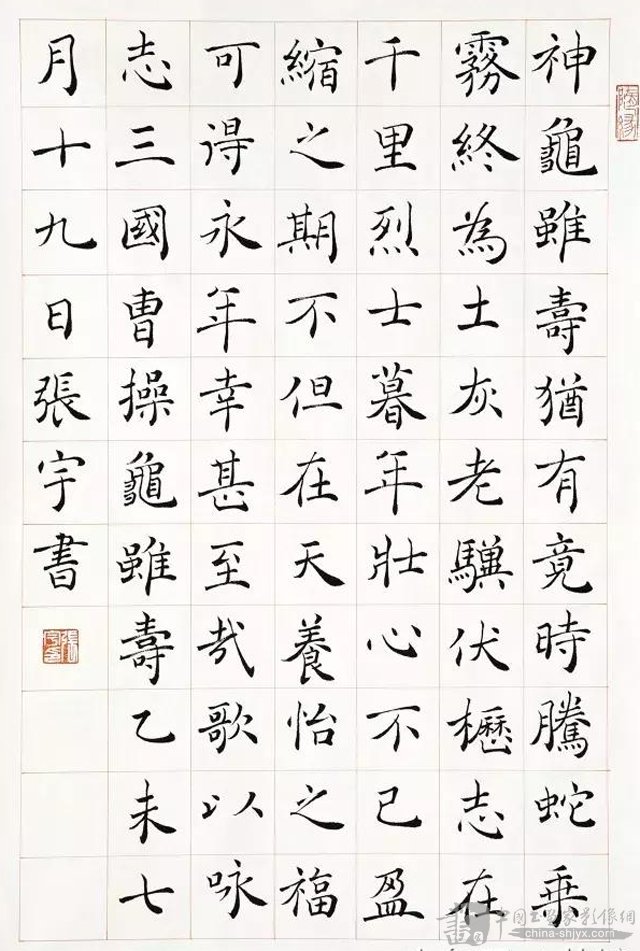 神龜雖壽猶有竟時騰蛇乘
霧終為土灰老驥伏櫪志在
千里烈士暮年壯心不已盈
縮之期不但在天養怡之福
可得永年幸甚至哉歌以咏
志三國曹操龜雖壽乙未七
月十九日張宇書
china-shjyx.com